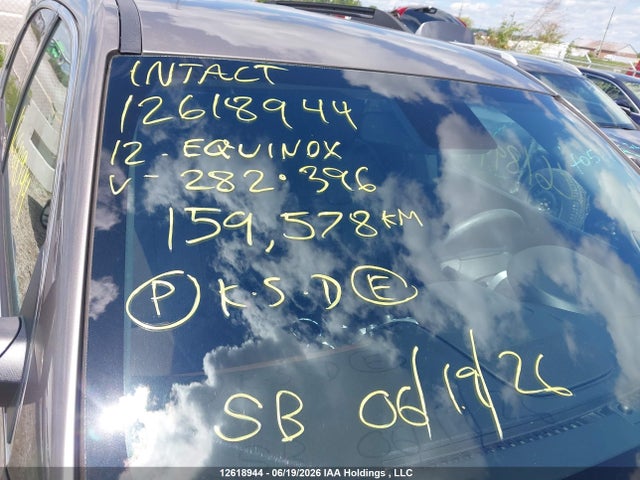 INTACT
12618944
12 - EQUINOX
V - 282.396
159,578 KM
P K.S.D E
SB 06/19/26
12618944 - 06/19/2026 IAA Holdings , LLC